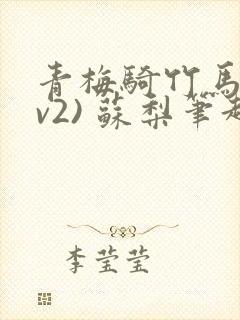 青梅騎竹馬
v2) 蘇梨筆趣
李莹莹